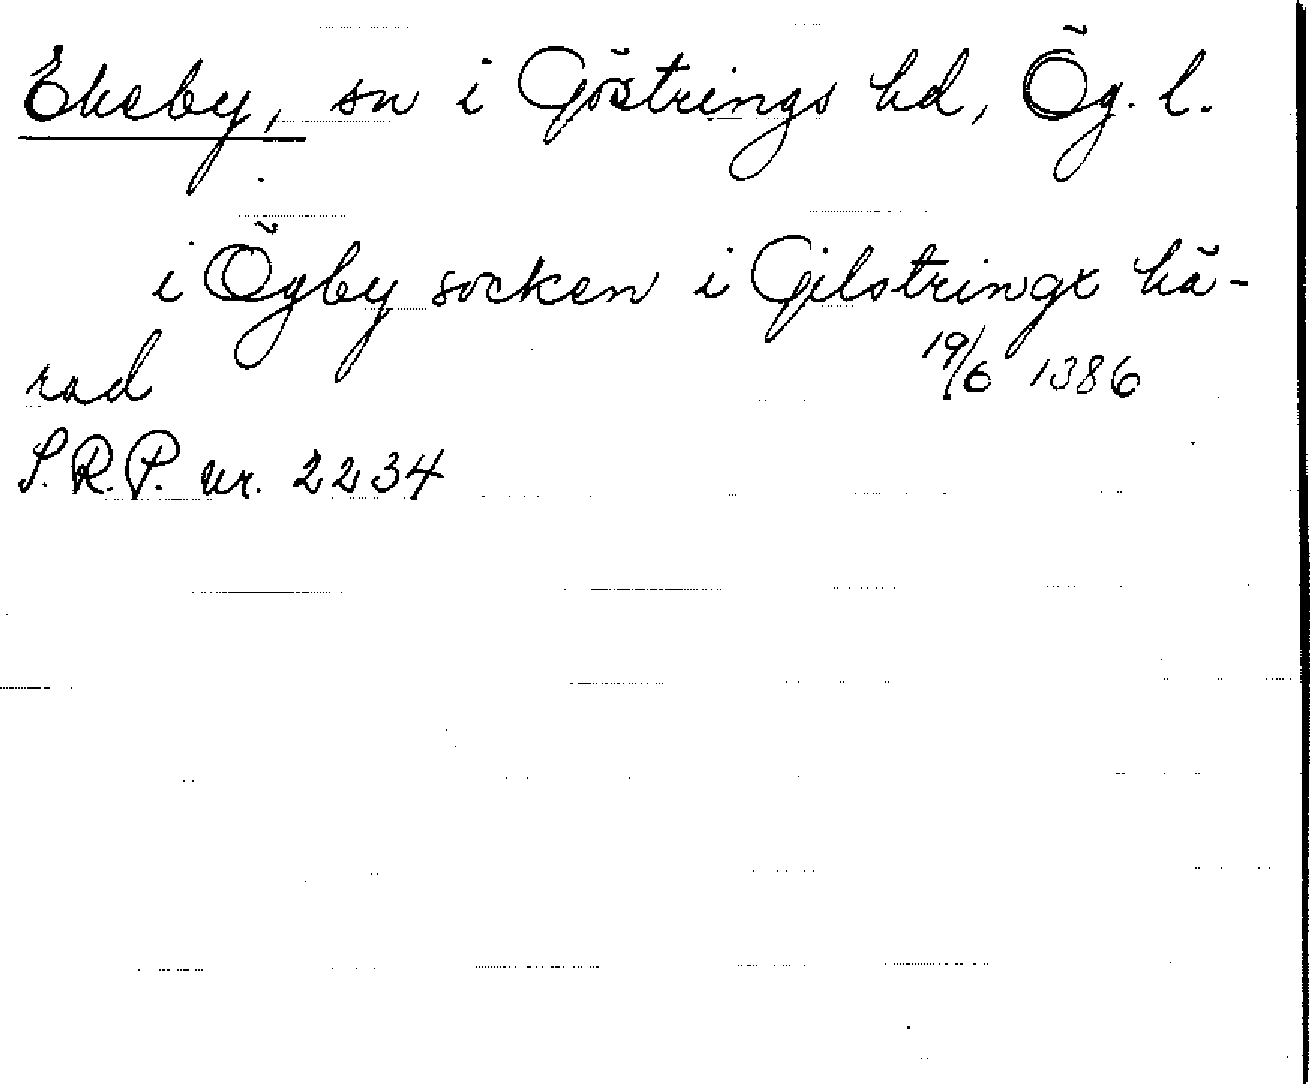 Eksby, sn i Göstrings hd, Ög. l.
i Ögby socken i Gilstringx hä-
rad 19/6 1386
S.R.P. nr. 2234